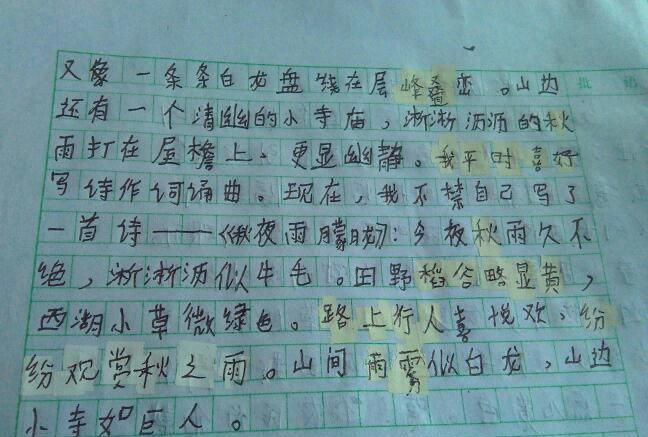 又像一条条白龙盘绕在层峰叠峦。山边
还有一个清幽的小寺庙，淅淅沥沥的秋
雨打在屋檐上、更显幽静。我平时喜好
写诗作词诵曲。现在，我不禁自己写了
一首诗——《秋夜雨朦胧》：今夜秋雨久不
绝，淅淅沥似牛毛。田野稻谷略显黄，
西湖小草微绿色。路上行人喜悦欢，纷
纷观赏秋之雨。山间雨雾似白龙，山边
小寺如巨人。